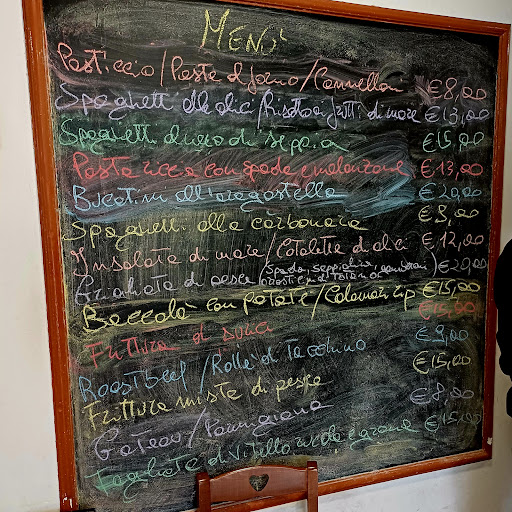 Menù
Pasticcio/Pasta al forno/Cannelloni €8,00
Spaghetti alle alici/Risotto ai frutti di mare €13,00
Spaghetti al nero di seppia €15,00
Pasta ricca con spada e melanzane €13,00
Bucatini all'aragostella €20,00
Spaghetti alla carbonara €9,00
Insalata di mare/Cotoletta di alici €12,00
Grigliata di pesce (Spada, seppiolina, gamberoni, €20,00
e totano)
Baccalà con patate/Calamari rip €15,00
Frittura di
Roastbeef/Rollè di Tacchino €9,00
Frittura mista di pesce €15,00
Gateau/Parmigiana €8,00
Tagliata di Vitello rucola e grana €15,00